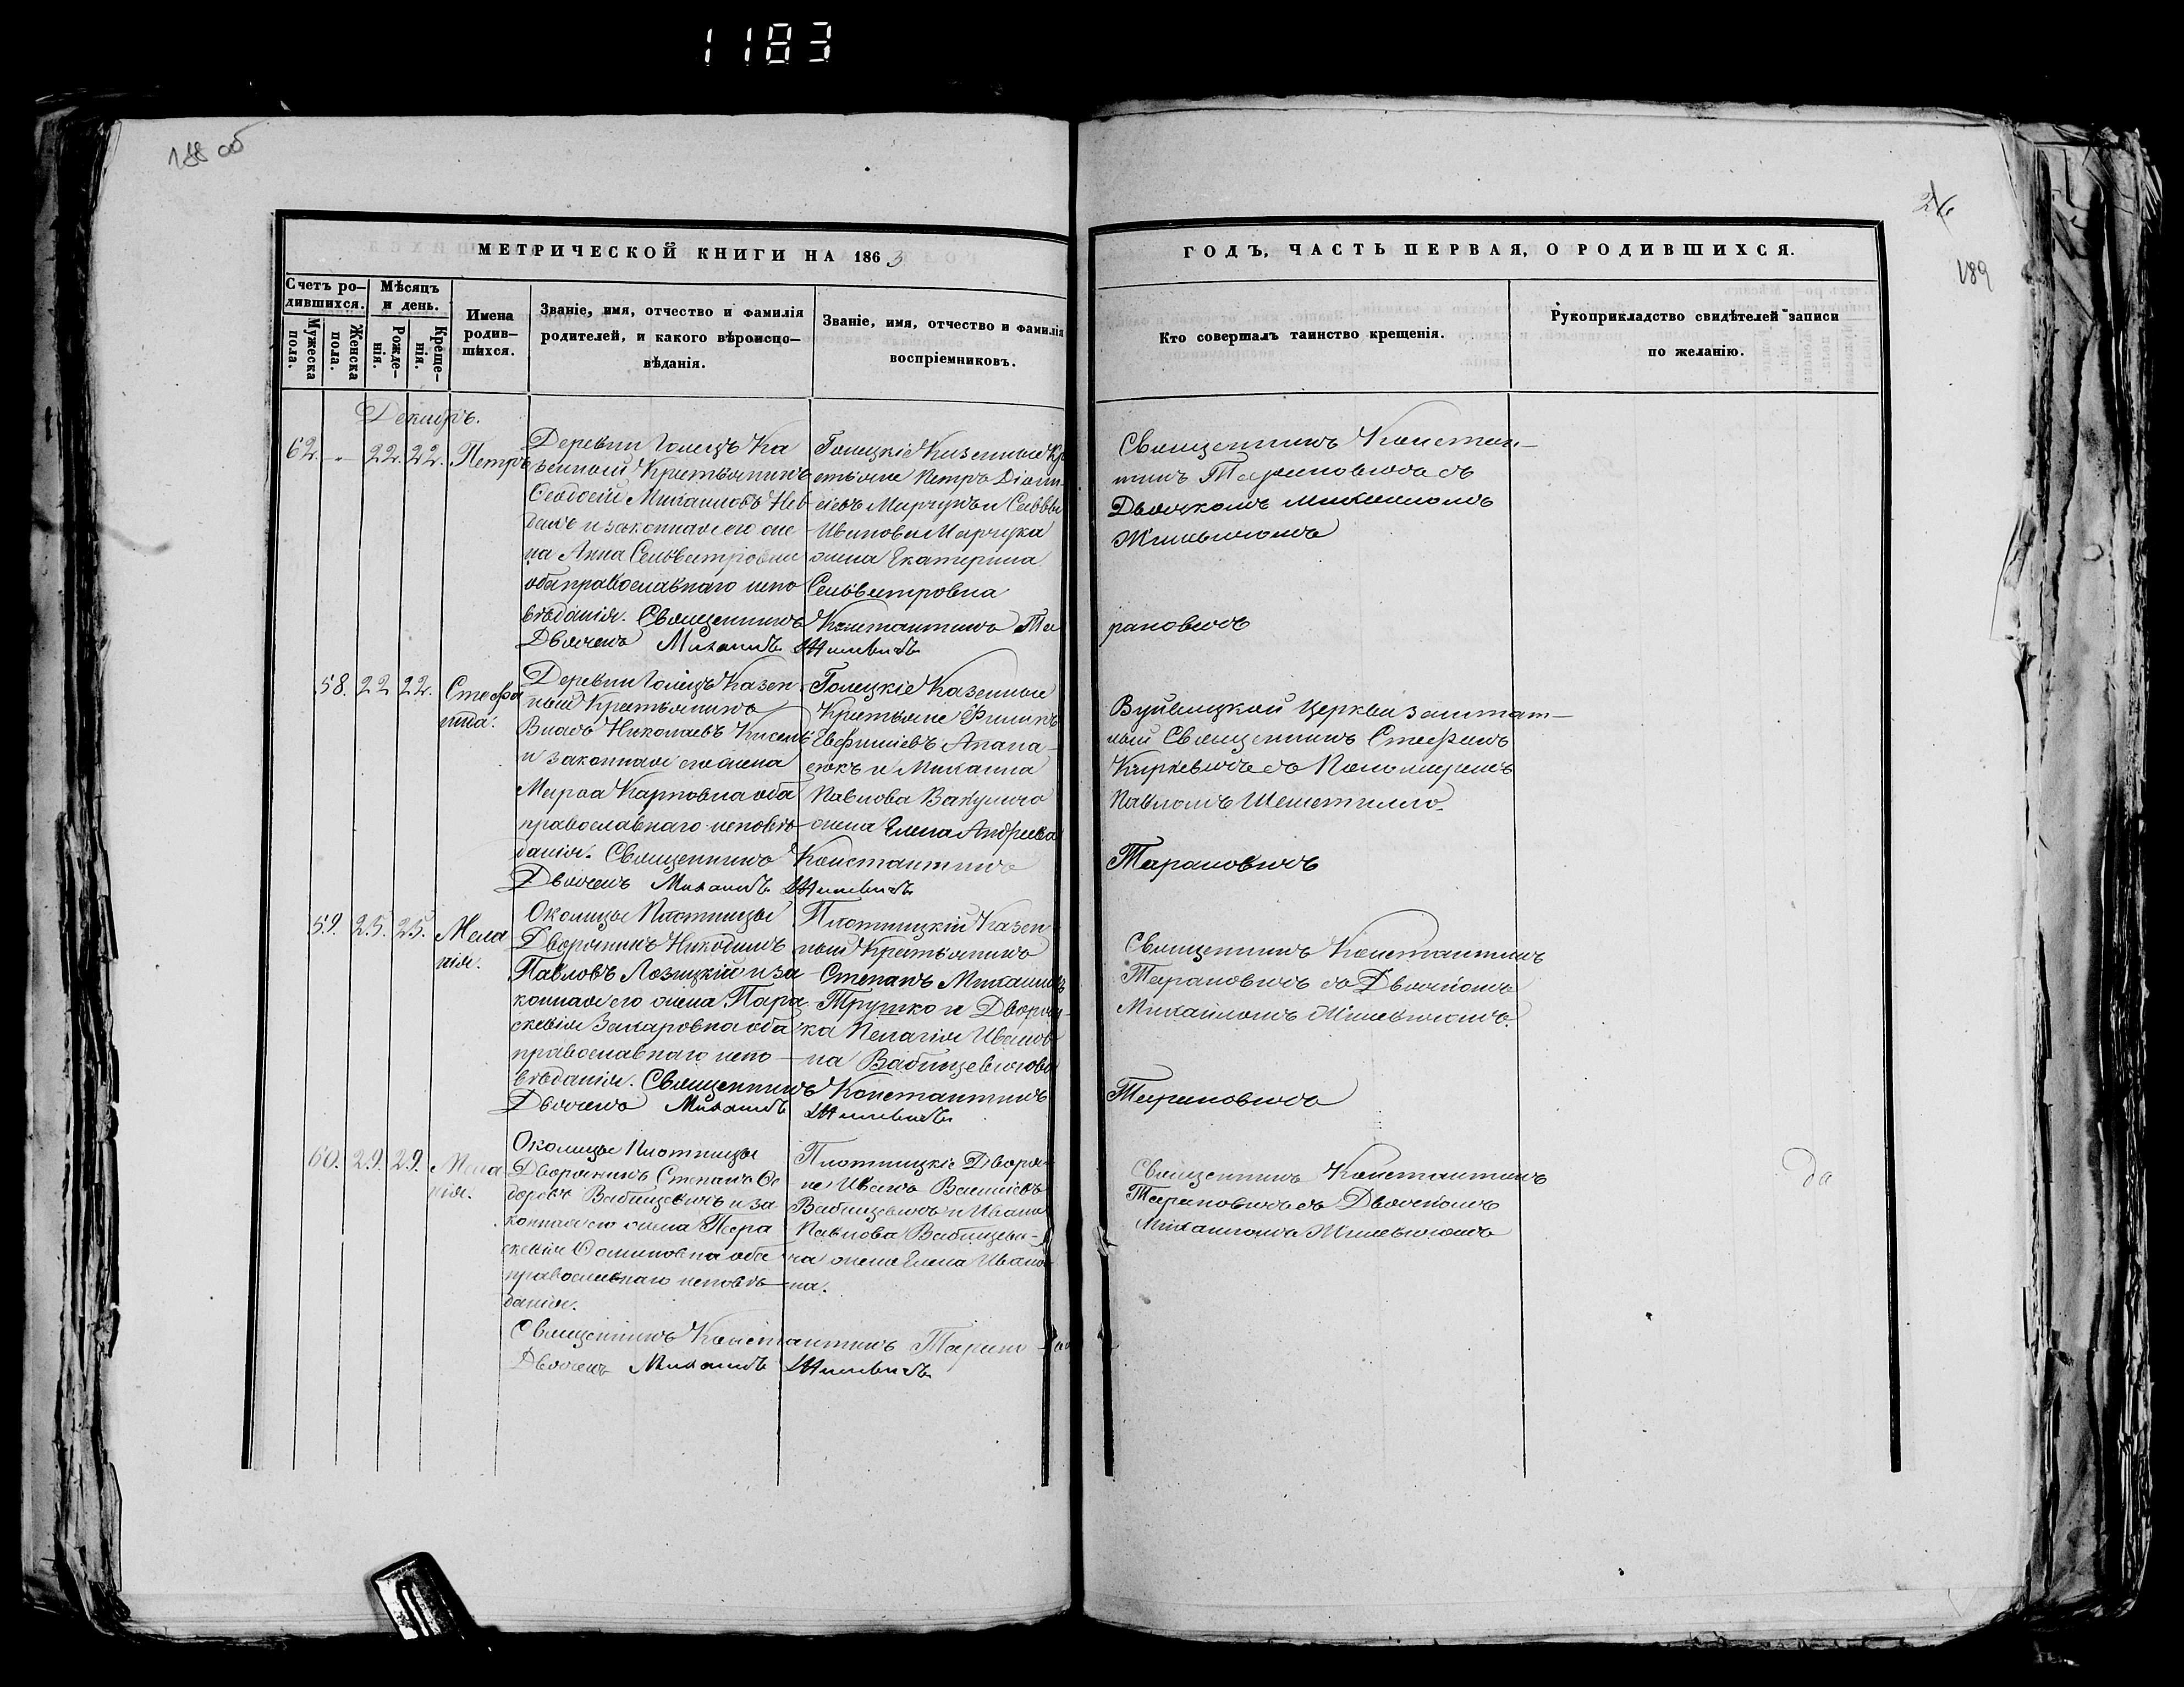 1183
188 об
26
189
МЕТРИЧЕСКОЙ КНИГИ НА 1863
ГОДЪ, ЧАСТЬ ПЕРВАЯ, О РОДИВШИХСЯ.
Счетъ ро-
дившихся.
Мужеска
пола.
Женска
пола.
Мѣсяцъ
и день.
Рожде-
нія.
Креще-
нія.
Имена
родив-
шихся.
Званіе, имя, отчество и фамилія
родителей, и какого вѣроиспо-
вѣданія.
Званіе, имя, отчество и фамилія
воспріемниковъ.
Кто совершалъ таинство крещенія.
Рукоприкладство свидѣтелей записи
по желанію.
Декабрь.
62. - 22. 22. Петръ
Деревни Голецъ Ка
зенный Крестьянинъ
Феодосій Михаиловъ
и законная его же
на Анна Сельвестровна
оба православнаго испо
вѣданія. Священникъ Константинъ Та
рановичъ
Дьячекъ Михаилъ Жилевичъ
Голецкіе Казенные Кр
естьяне Петръ
и
Иванова Марчука
жена Екатерина
Сельвестровна
Священникъ Констан-
тинъ Тарановичъ съ
Дьячкомъ Михаиломъ
Жилевичомъ
58. 22 22. Стефа
нида.
Деревни Голецъ Казен
ный Крестьянинъ
Власъ Николаевъ Кисель
и законная его жена
Марѳа Карповна оба
православнаго исповѣ-
данія. Священникъ Константинъ
Тарановичъ
Дьячекъ Михаилъ Жилевичъ
Голецкіе Казенные
Крестьяне Филипъ
Евфиміевъ Апана-
сюкъ и Михаила
Павлова Вакулича
жена Елена Андреева
Вуйвицкой Церкви заштат-
ный Священникъ Стефанъ
Киркевичъ съ Пономаремъ
Павломъ Шеметилло.
59. 25. 25. Мела
нія.
Околицы Плотницы
Дворянинъ Никодимъ
Павловъ Лозицкій и за
конная его жена Пара
скевія Захаровна оба
православнаго испо-
вѣданія. Священникъ Константинъ
Тарановичъ
Дьячекъ Михаилъ Жилевичъ
Плотницкій Казен-
ный Крестьянинъ
Степанъ Михаиловъ
Трушко и Дворян-
ка Пелагія Иванов
на Вабищевичова
Священникъ Константинъ
Тарановичъ съ Дьячкомъ
Михаиломъ Жилевичомъ.
60. 29. 29. Мела
нія.
Околицы Плотницы
Дворянинъ Степанъ Ѳе
доровъ Вабищевичъ и за
конная его жена Пара
скевія Ѳоминовна оба
православнаго исповѣ-
данія.
Священникъ Константинъ Тарано
Дьячекъ Михаилъ Жилевичъ
Плотницкіе Дворя-
не Иванъ Васильевъ
Вабищевичъ и Ивана
Павлова Вабищеви-
ча жена Елена Иванов
на.
Священникъ Константинъ
Тарановичъ съ Дьячкомъ
Михаиломъ Жилевичомъ
да